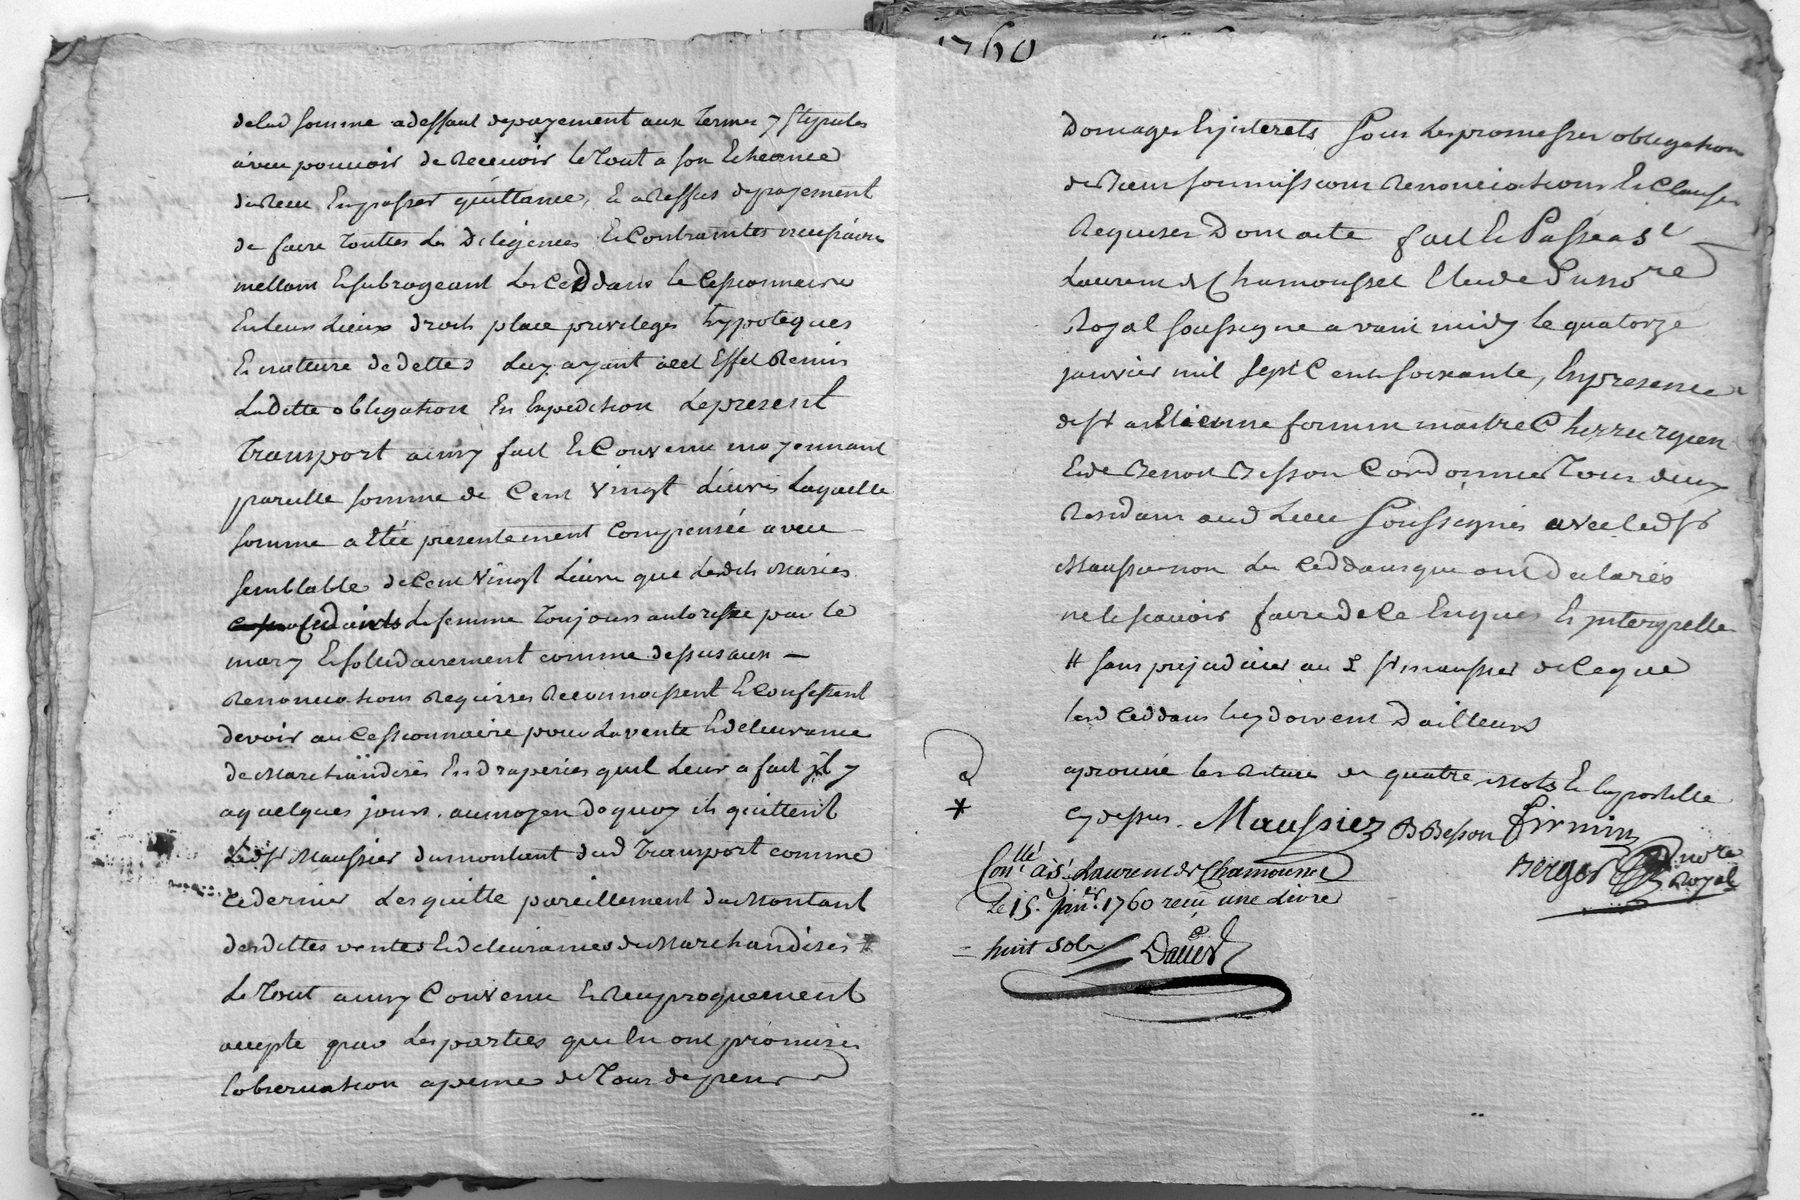 delad somme adeffaut depayement aux termes y stipules
avec pouvoir de Recevoir le tout a son Echeance
du Receu En passer quittance, Et a Reffus depayement
de faire touttes Les Diligences Et Contraintes necessaires
mettant Et subrogeant Les Ceddans le Cessionnaire
En leurs Lieux droits place privileges hypoteques
Et nature de dettes Luy ayant a cet Effet Remis
Laditte obligation En Expedition Le present
Transport ainsy fait Et Convenu moyennant
pareille somme de Cent Vingt Livres Laquelle
somme a Eté presentement Compensée avec
semblable de Cent Vingt Livres que Lesdits Maries
Ceddants La femme toujours autorisee par le
mary Et solidairement comme dessus aux
Renonciations Requises Reconnoissent Et Confessent
devoir au Cessionnaire pour La vente Et delivrance
de Marchandises En Draperies quil Leur a fait jl y
a quelques jours. au moyen de quoy ils quittent
Ledst Maussier du montant dud Transport comme
ce dernier Les quitte pareillement du Montant
desdittes ventes Et delivrances de Marchandises #
Le tout ainsy Convenu Et Reciproquement
accepté par Les parties qui En ont promis
Lobservation a peine de tous depens
Domages Et jnterets sous Les promesses obligation
de Biens soumissions Renonciations Et Clauses
Requises Dont acte fait Et Passé a St
Laurent de Chamousset Etude Du nore
Royal soussigne avant midy le quatorze
janvier mil sept Cent soixante, En presence
de sr Etienne firmin maitre Chirurgien
Et de Benoit Besson Cordonnier tous deux
Residans aud Lieu soussignés avec ledsr
Maussier non Les Ceddans qui ont declarés
ne le scavoir faire de Ce Enquis Et jnterpelle
# sans prejudice au sr maussier de Ce que
lesd Ceddans luy doivent D'ailleurs
aprouvé les Ratures de quatre Mots Et l'apostille
cy dessus. Maussiez B Besson firmin
Berger nore Royal
Conllé a St Laurent de Chamousset
Le 15e Janer 1760 reçu une Livre
huit sols